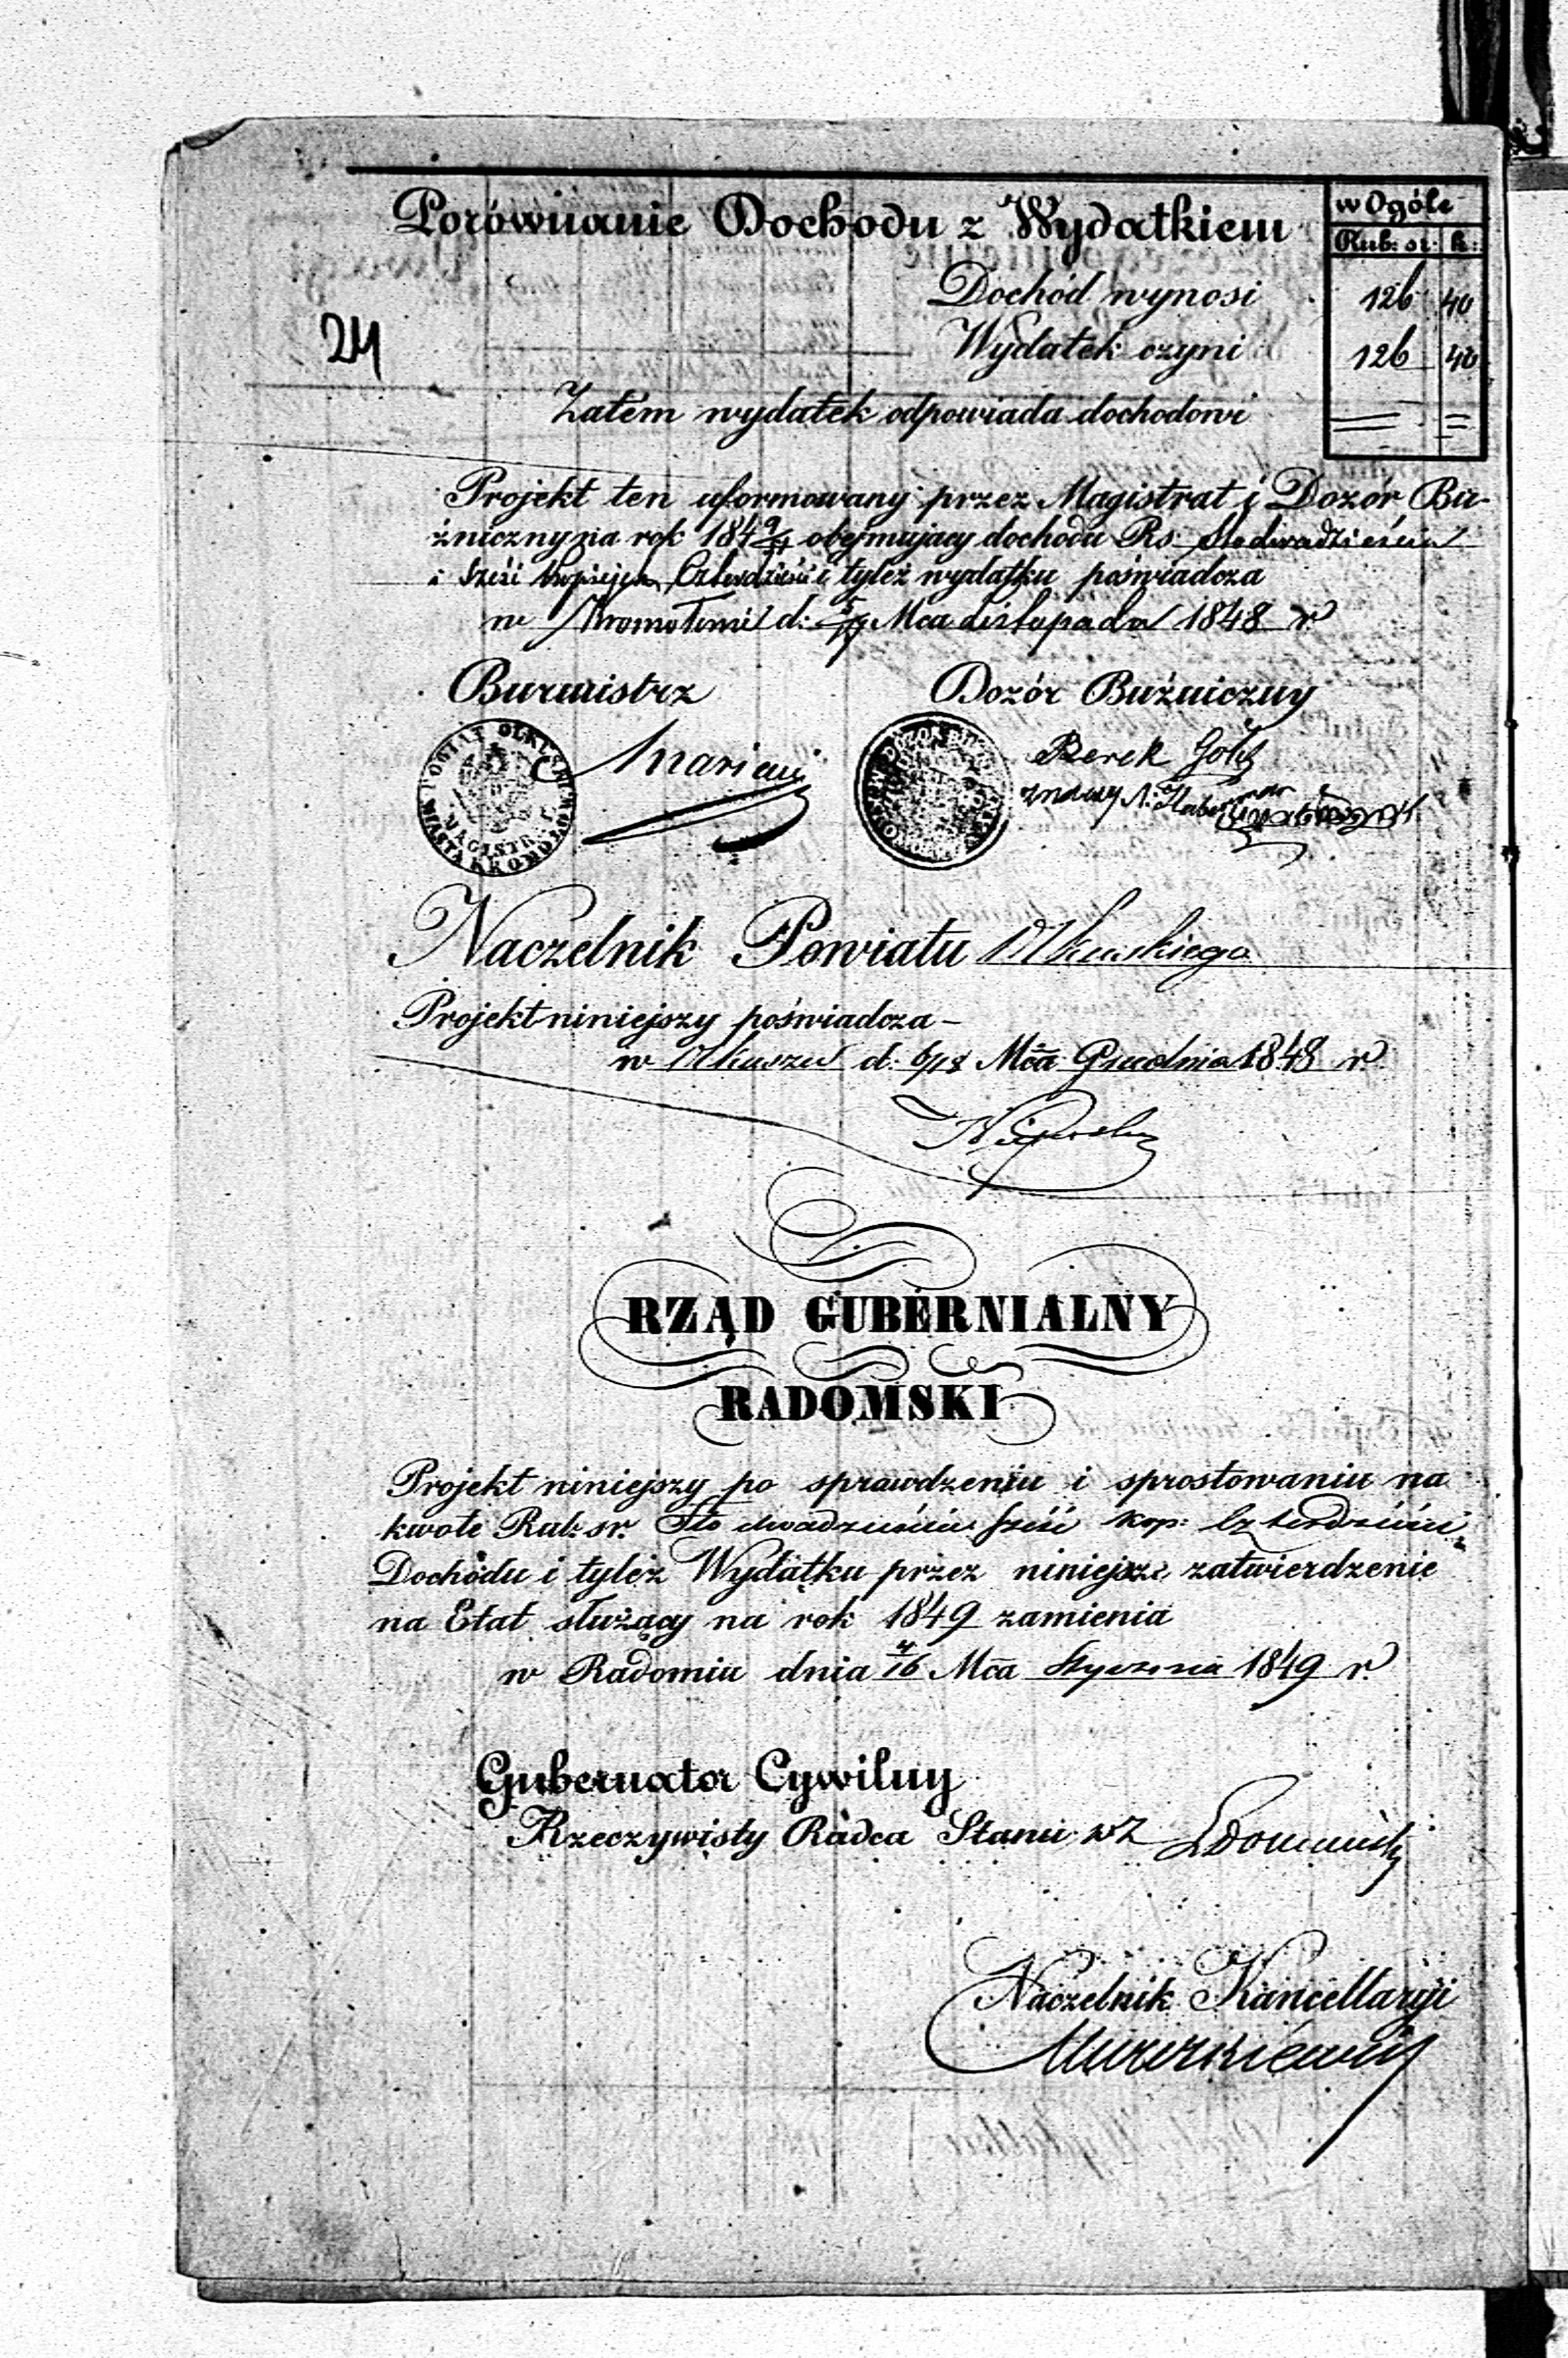 Porównanie Dochodu z Wydatkiem
w Ogóle
Rub: sr: k:
Dochód wynosi 126 40
24
Wydatek czyni 126 40
Zatem wydatek odpowiada dochodowi
Projekt ten uformowany przez Magistrat i Dozór Bu-
źniczny na rok 1849/51 obejmujacy dochodu Rs: Stodwadzieścia
i Sześć kopiejek Czterdzieści i tyleż wydatku poświadcza
w Kromołowie d: Mca Listopada 1848 r
Burmistrz Dozór Buźniczny
POWIAT OLKUSKI
MAGISTRAT
MIASTA KROMOŁOWA
Berek Gold
Naczelnik Powiatu Olkuskiego
Projekt niniejszy poświadcza –
w Olkuszu d. 6/18 Mca Grudnia 1848 r.
RZĄD GUBERNIALNY
RADOMSKI
Projekt niniejszy po sprawdzeniu i sprostowaniu na
kwote Rub: sr. Sto dwadzieścia sześć kop: czterdzieści
Dochodu i tyleż Wydatku przez niniejsze zatwierdzenie
na Etat służący na rok 1849 zamienia
w Radomiu dnia 4/16 Mca Stycznia 1849 r.
Gubernator Cywilny
Rzeczywisty Radca Stanu wz
Naczelnik Kancellaryi